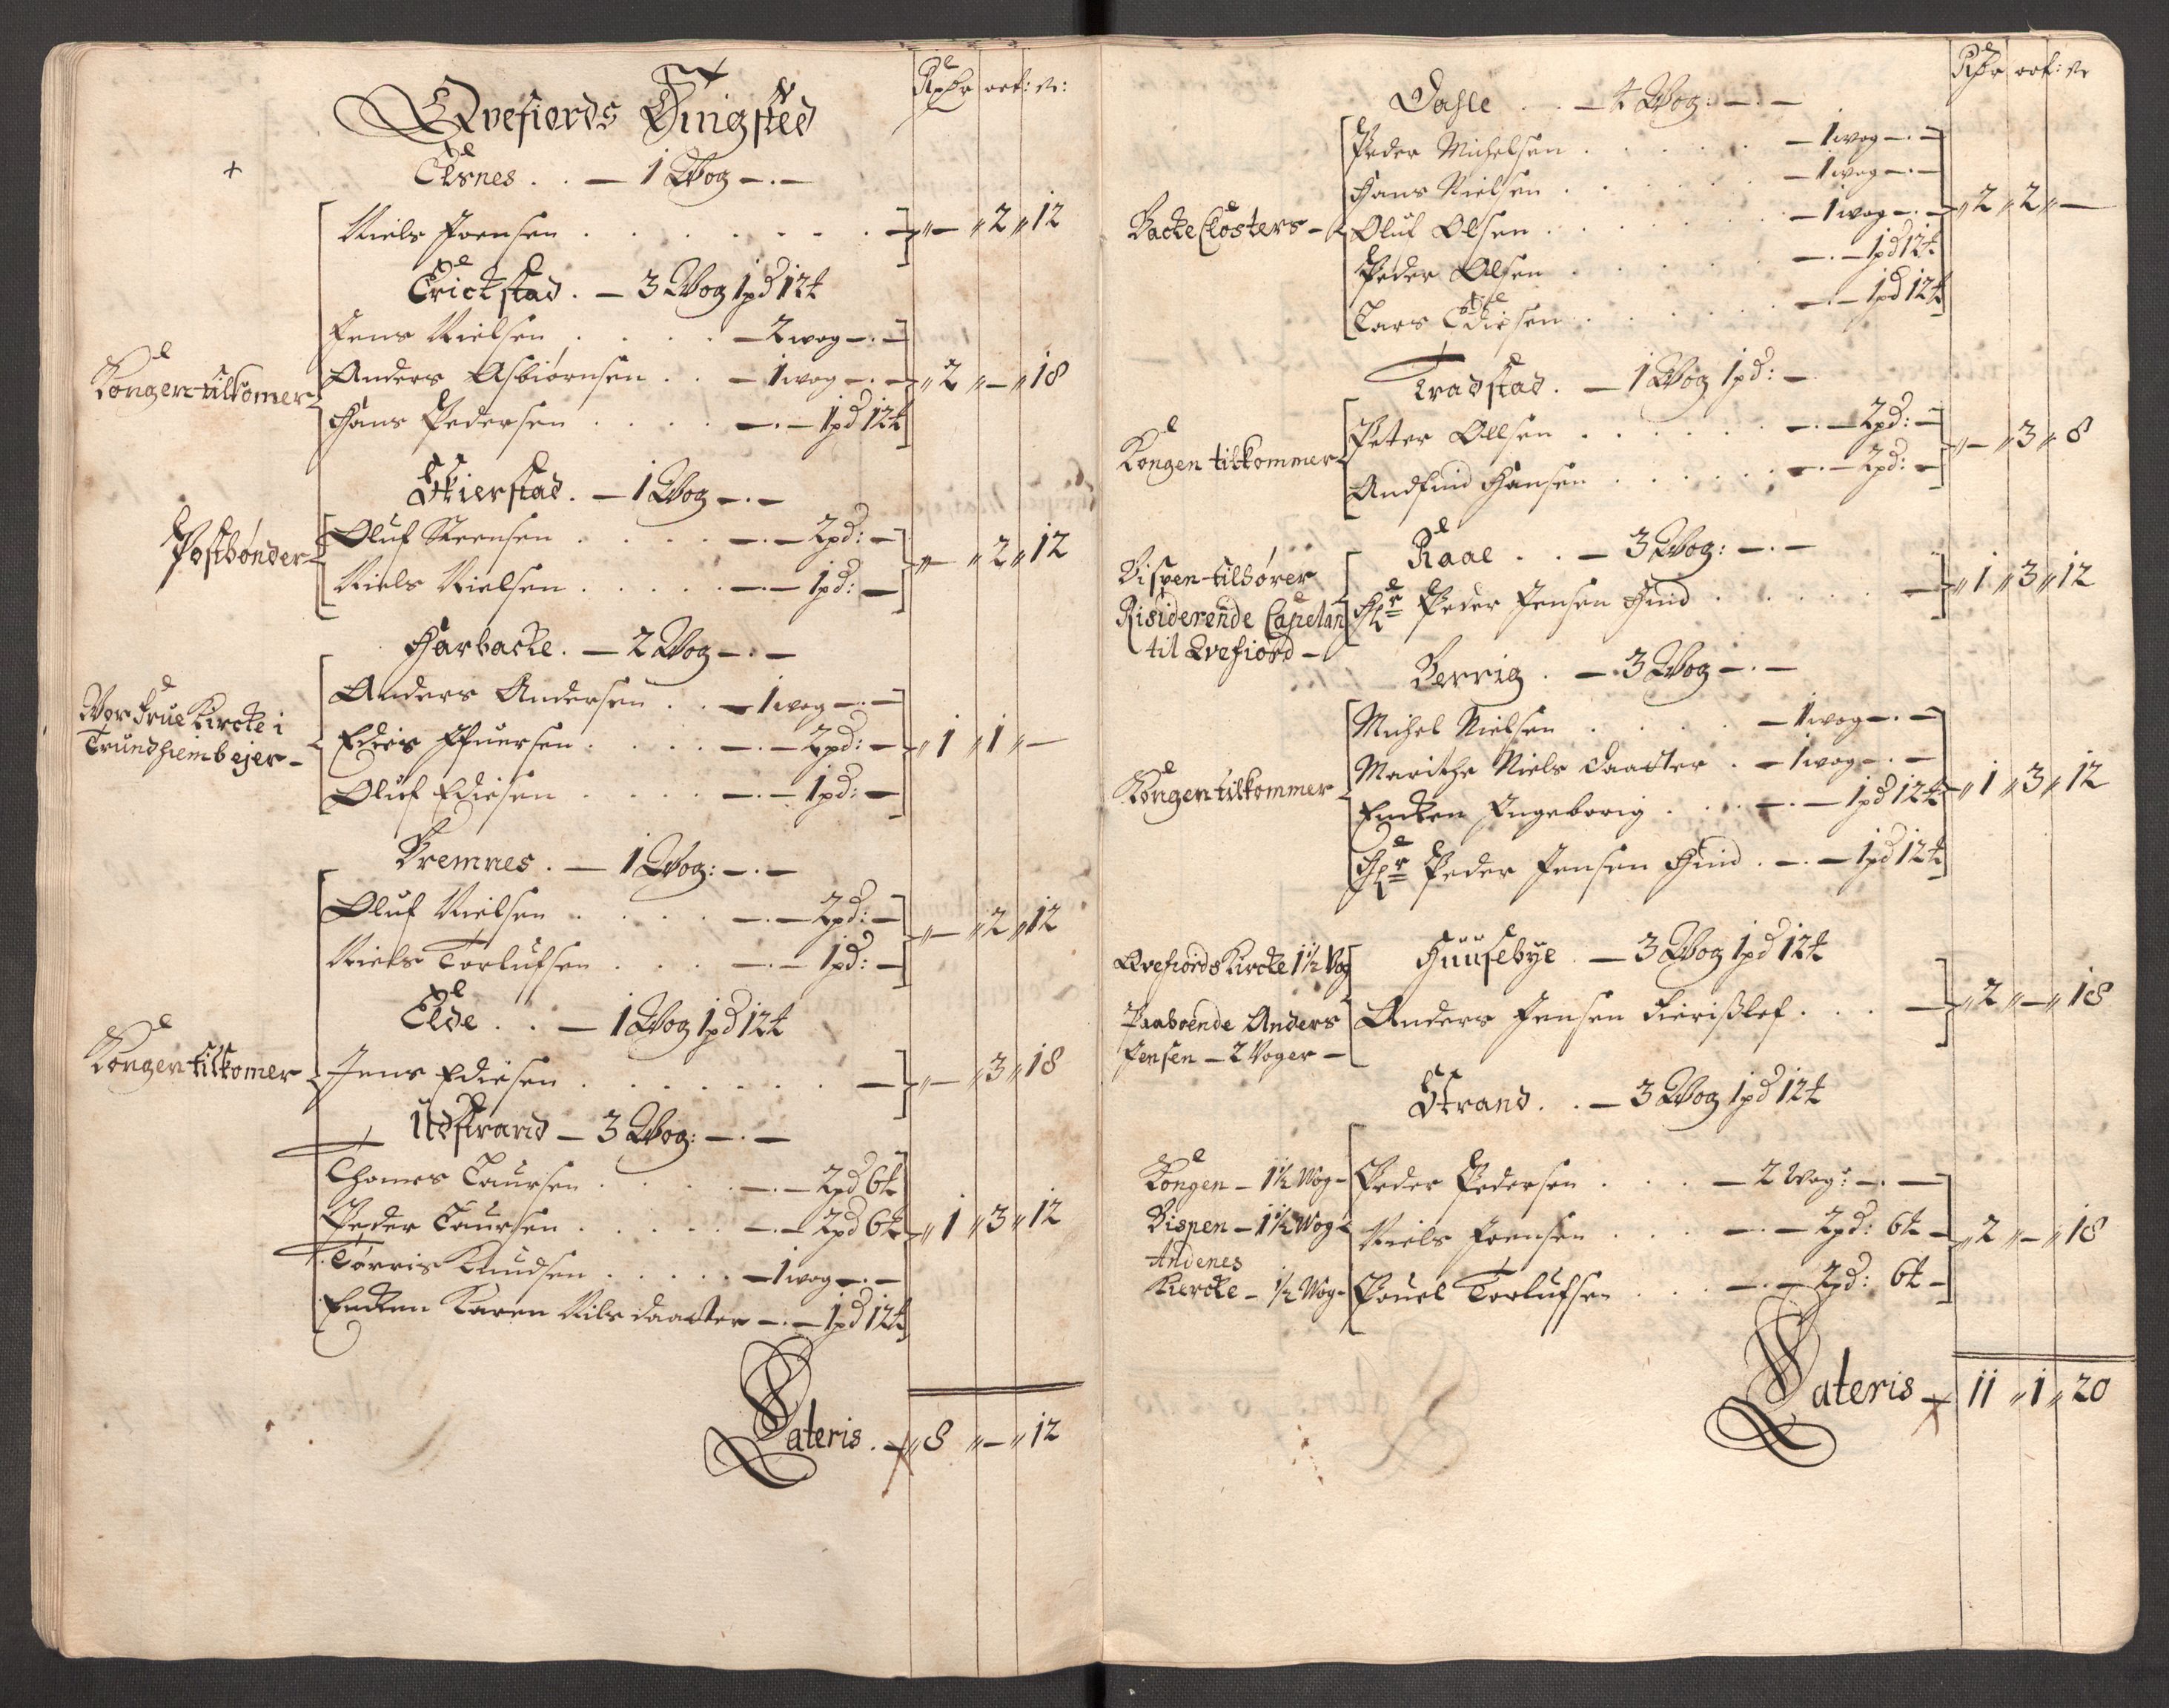 Rdr ort: s:
Qvefiords Tingsted
+
Elsnes . . — 1 Wog — . —
Niels Joensen . . . . . . . — „ — „ 2 „ 12
Erickstad . — 3 Wog 1 pd 12 lb
Jens Nielsen . . . . — 2 wog — . —
Kongen tilkomer
Anders Asbiørnsen . . — 1 wog — . — „ 2 „ — „ 18
Hans Pedersen . . . . — . — 1 pd 12 lb
Skierstad . — 1 Wog — . —
Postbønder
Oluf Steensen . . . . — . — 2 pd: — „ — „ 2 „ 12
Niels Nielsen . . . . . — . — 1 pd: —
Harbacke . — 2 Wog — . —
Vor Frue Kircke i
Trundhiemb ejer —
Anders Andersen . . — 1 wog — . —
Edies Ifuersen . . . . — . — 2 pd: — „ 1 „ 1 „ —
Oluf Ediesen . . . . — . — 1 pd: —
Bremnes . — 1 Wog: — . —
Oluf Nielsen . . . . — . — 2 pd: — „ — „ 2 „ 12
Niels Torlufsen . . . — . — 1 pd: —
Elde . . — 1 Wog 1 pd 12 lb
Kongen tilkomer
Jens Ediesen . . . . . . . — „ — „ 3 „ 18
Udstrand — 3 Wog: — . —
Thomes Laursen . . . . — . — 2 pd 6 lb
Peder Laursen . . . . . — . — 2 pd 6 lb „ 1 „ 3 „ 12
Tørris Knudsen . . . . . — 1 wog — . —
Encken Karen Nils daatter — . — 1 pd 12 lb
Lateris . — „ 8 „ — „ 12
Rdr ort: s
Dahle . . — 4 Wog: — . —
Peder Michelsen . . . . . — 1 wog — . —
Hans Nielsen . . . . . . — 1 wog — . —
Backe Closters —
Oluf Olsen . . . . . . — 1 wog — . — „ 2 „ 2 „ —
Peder Olsen . . . . . . — . — 1 pd 12 lb
Lars Ediesen . . . . . — . — 1 pd 12 lb
Tradstad . — 1 Wog 1 pd: —
Kongen tilkommer
Peter Ollsen . . . . . . — . — 2 pd: — „ — „ 3 „ 8
Andfind Hansen . . . . . — . — 2 pd: —
Raae . . — 3 Wog: — . —
Bispen tilhører
Risiderende Capelan
til Qvefiord —
Hr Peder Jensen Hind . . . . . — „ 1 „ 3 „ 12
Berrig . — 3 Wog — . —
Michel Nielsen . . . . — 1 wog — . —
Marithe Niels daatter . — 1 wog — . —
Kongen tilkommer
Encken Ingeborig . . . — . — 1 pd 12 lb „ 1 „ 3 „ 12
Hr Peder Jensen Hind . — . — 1 pd 12 lb
Huusebye . — 3 Wog 1 pd 12 lb
Qvefiords Kircke 1 1/2 Vog
Paaboende Anders
Jensen — 2 Voger —
Anders Jensen Fierißlef . . . — „ 2 „ — „ 18
Strand . . — 3 Wog 1 pd 12 lb
Kongen — 1 1/2 Wog —
Peder Pedersen . . . — 2 Wog: — . —
Bispen — 1 1/2 Wog —
Niels Joensen . . . — . — 2 pd: 6 lb — „ 2 „ — „ 18
Andenes
Kiercke — 1/2 Wog —
Pouel Torlufsen . . . — . — 2 pd: 6 lb —
Lateris — 11 „ 1 „ 20